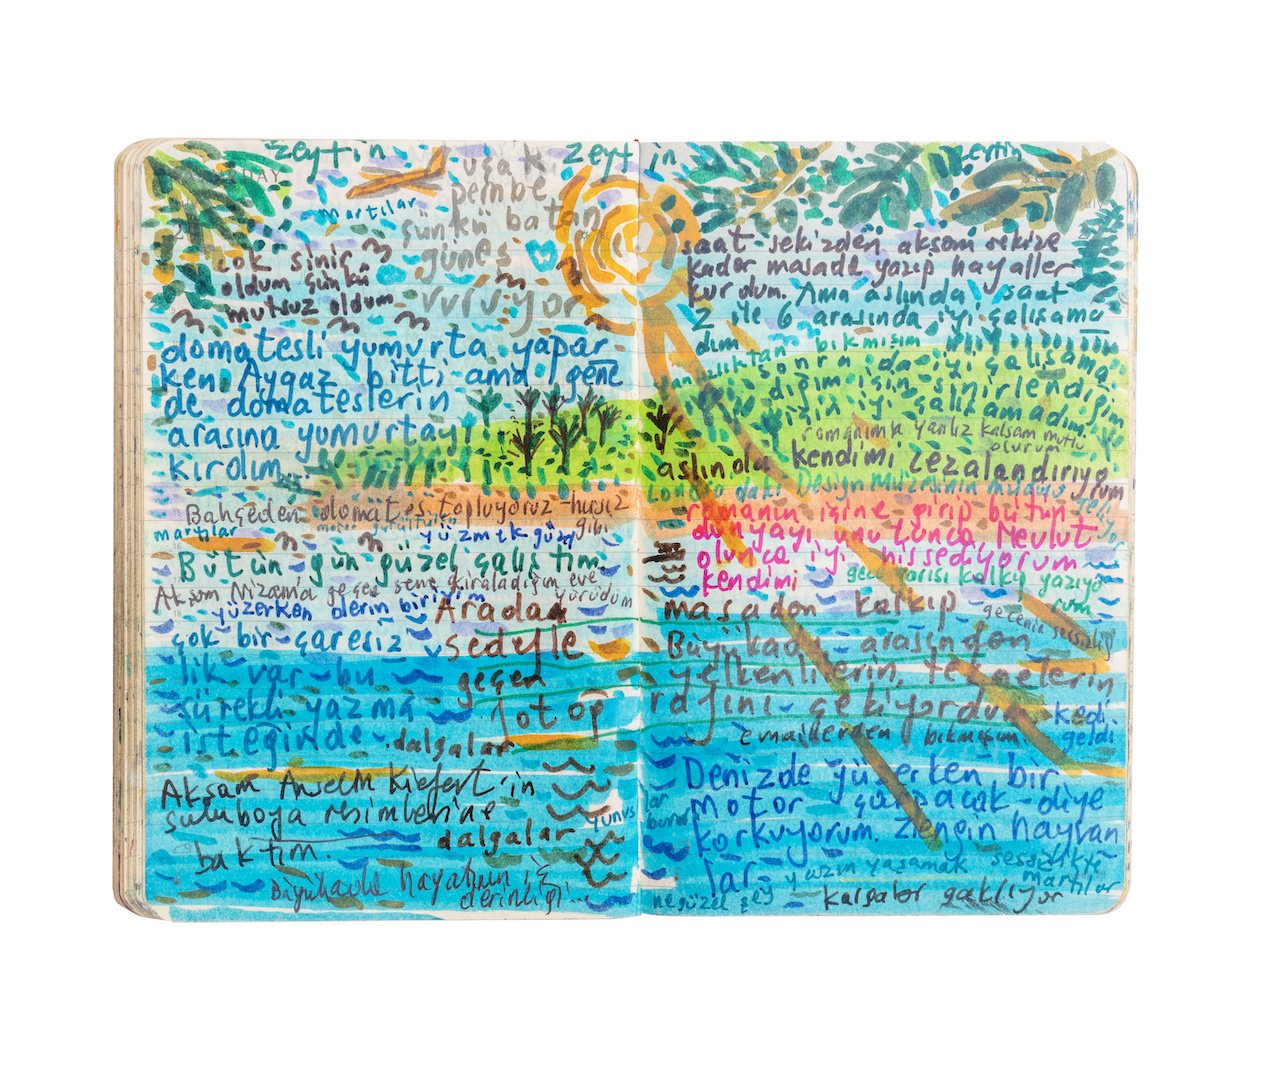 zeytin
uçak
pembe
çünkü batan
güneş
vuruyor
martılar
çok sinir
oldum çünkü
mutsuz oldum
domatesli yumurta yapar
ken Aygaz bitti ama gene
de domateslerin
arasına yumurtayı
kırdım
Bahçeden domates topluyoruz-hırsız
gibi
martılar
yüzmek güzel
Bütün gün güzel çalıştım
Akşam Nizam'a geçen sene kiraladığım eve
yürüdüm
yüzerken derin biriyim
çok bir çaresiz
lik var bu
sürekli yazma
isteğinde
Aradan
sedyle
geçen
dalgalar
Akşam Anselm Kiefert'in
suluboya resimlerine
baktım.
dalgalar
Büyükada hayatının iç
derinliği...
yunus
zeytin
zeytin
saat sekizden akşam sekize
kadar masada yazıp hayaller
kurdum. Ama aslında saat
2 ile 6 arasında iyi çalışama
dım
bıkmışım
sonra da iyi çalışama
dığım için sinirlendiğim
için iyi çalışamadım
romanımla yalnız kalsam mutlu
olurum
aslında kendimi cezalandırıyo
rum
Londra'daki Design Müzesinin müdürü
geliyor
romanın içine girip bütün
dünyayı unutunca Mevlut
olunca iyi hissediyorum
kendimi
gece yarısı kalkıp yazıyo
rum
masadan kalkıp
gecenin sessizliği
Büyükada arasından
yelkenlilerin, teknelerin
rafını çekiyordum
kedi
geldi
emaillerden bıkmışım
Denizde yüzerken bir
motor çarpacak diye
korkuyorum. Zengin hayvan
lar
yazın yaşamak sessizlikte
ne güzel şey
martılar
kargalar gaklıyor